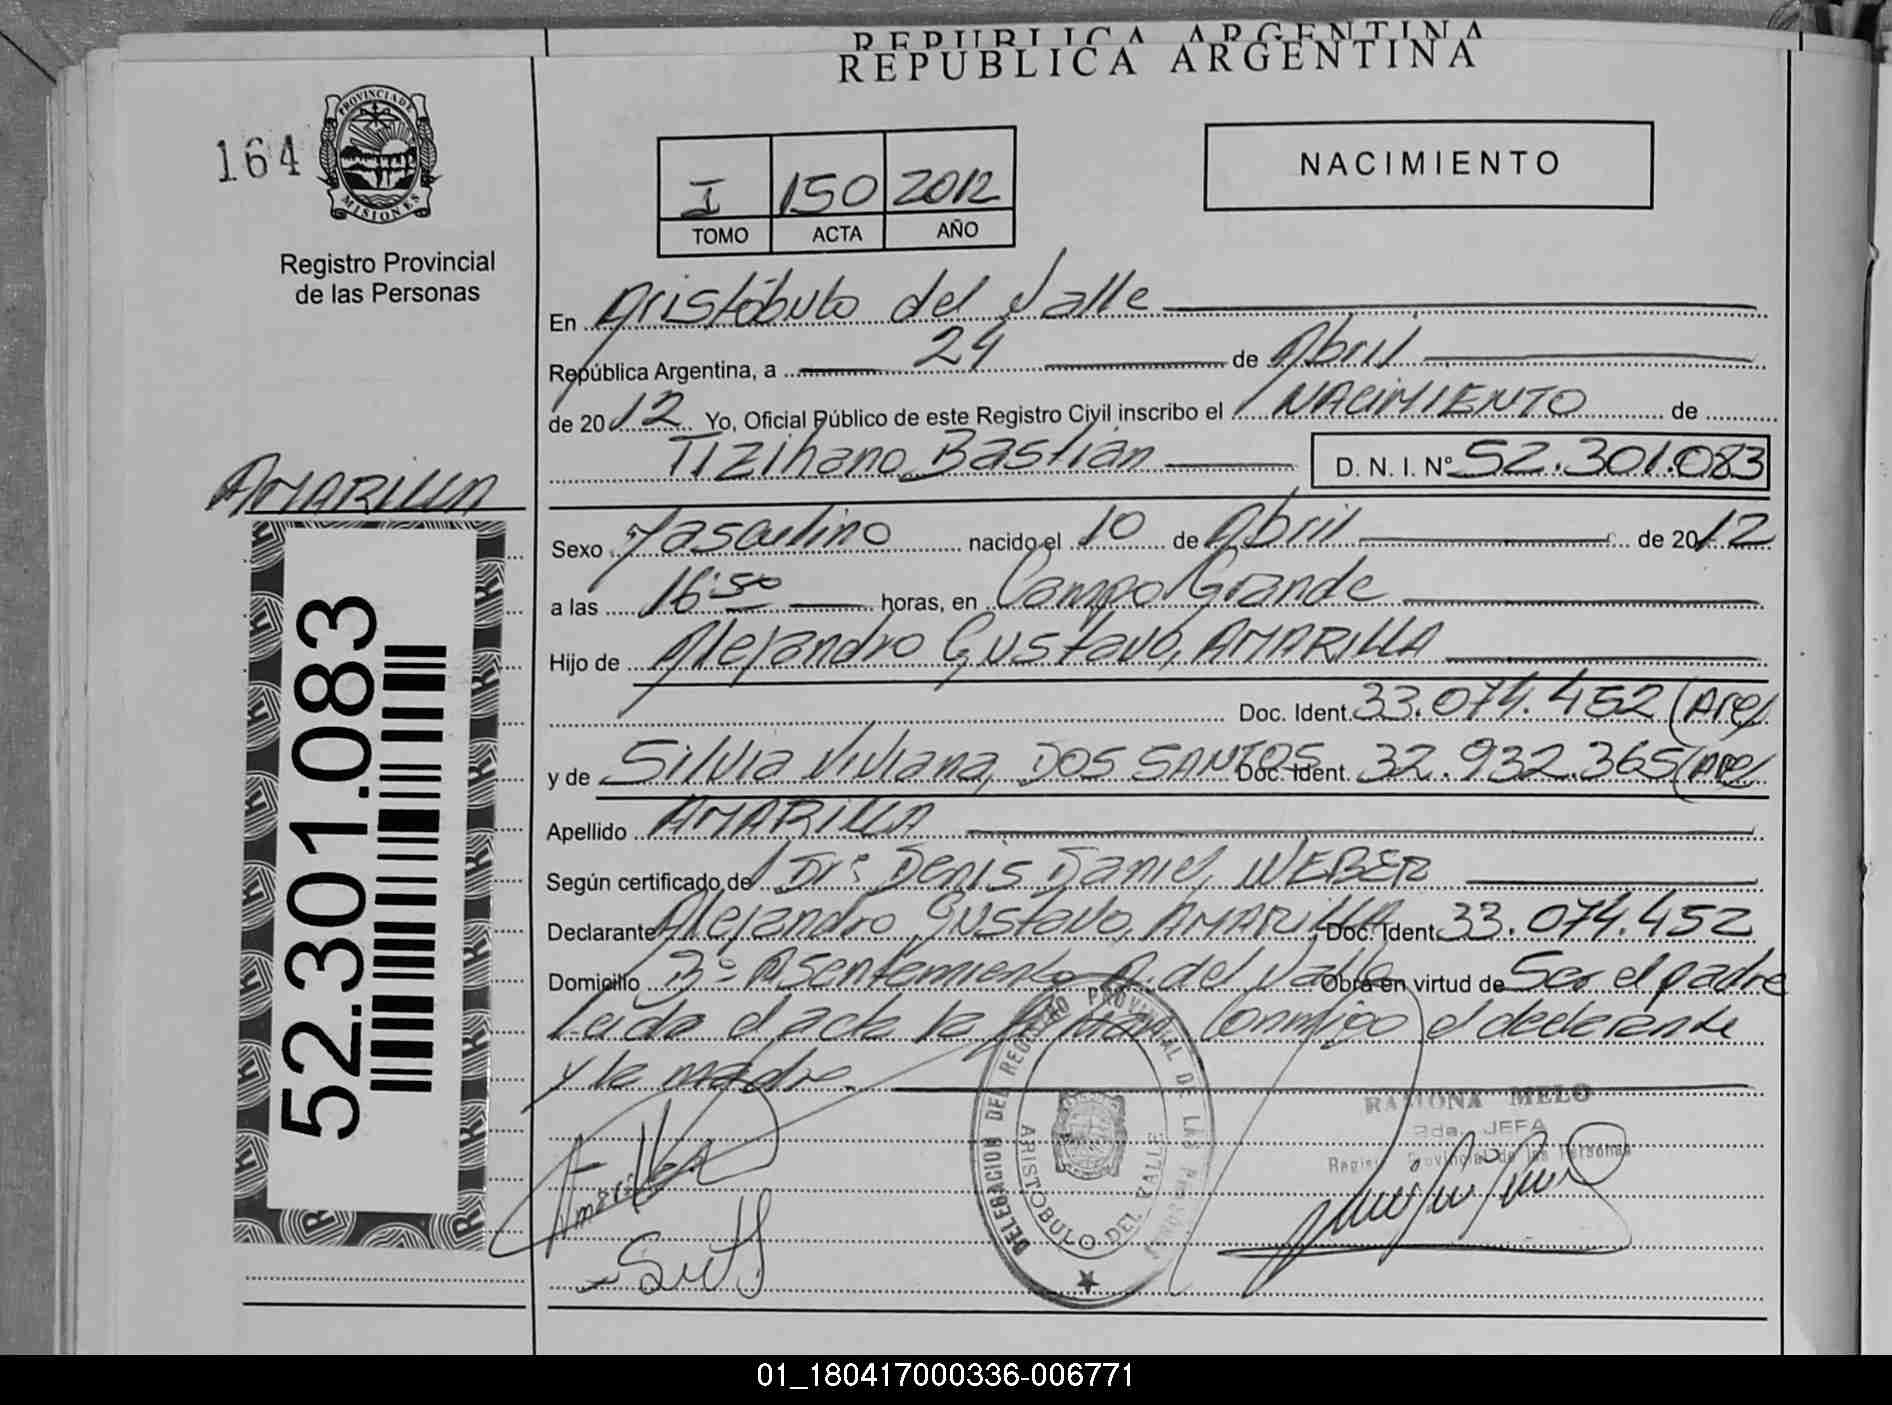 REPUBLICA ARGENTINA
REPUBLICA ARGENTINA
164
PROVINCIA DE
MISIONES
Registro Provincial
de las Personas
I 150 2012
TOMO ACTA AÑO
NACIMIENTO
En Aristóbulo del Valle
República Argentina, a 24 de Abril
de 2012 Yo, Oficial Público de este Registro Civil inscribo el NACIMIENTO de
Tizihano Bastián D. N. I. Nº 52.301.083
AMARILLA
52.301.083
Sexo Masculino nacido el 10 de Abril de 2012
a las 16:50 horas, en Campo Grande
Hijo de Alejandro Gustavo, AMARILLA
Doc. Ident. 33.074.452 (Arg)
y de Silvia Viviana, DOS SANTOS Doc. Ident. 32.932.365 (Arg)
Apellido AMARILLA
Según certificado de Dr: Denis Daniel, WEBER
Declarante Alejandro Gustavo, AMARILLA Doc. Ident. 33.074.452
Domicilio Bº Asentamiento A. del Valle Obra en virtud de Ser el padre
Leída el acta la firman conmigo el declarante
y la madre.
DELEGACION DEL REGISTRO PROVINCIAL DE LAS
ARISTOBULO DEL VALLE
RAMONA MELO
2da. JEFA
Registro Provincial de las Personas
Amarilla
01_180417000336-006771